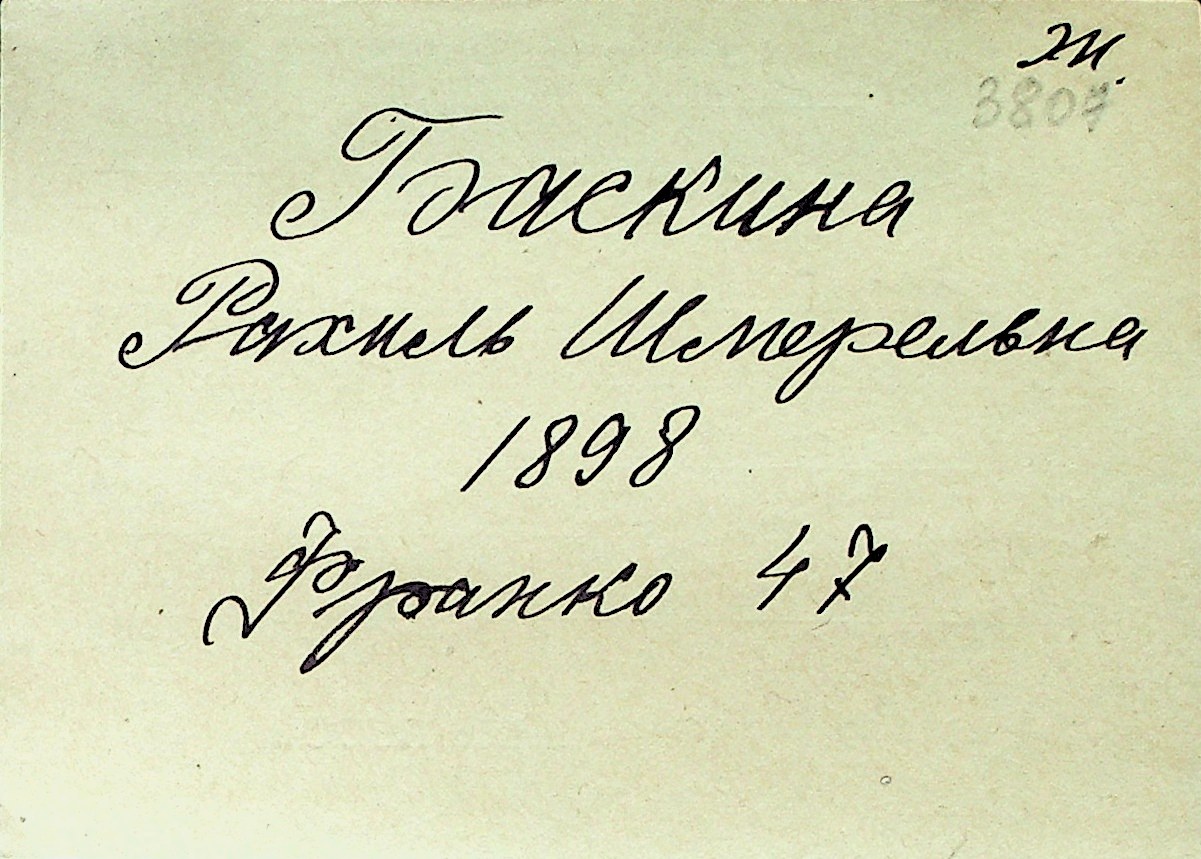 ж.
3807
Баскина
Рахиль Шмерельвна
1898
Франко 47